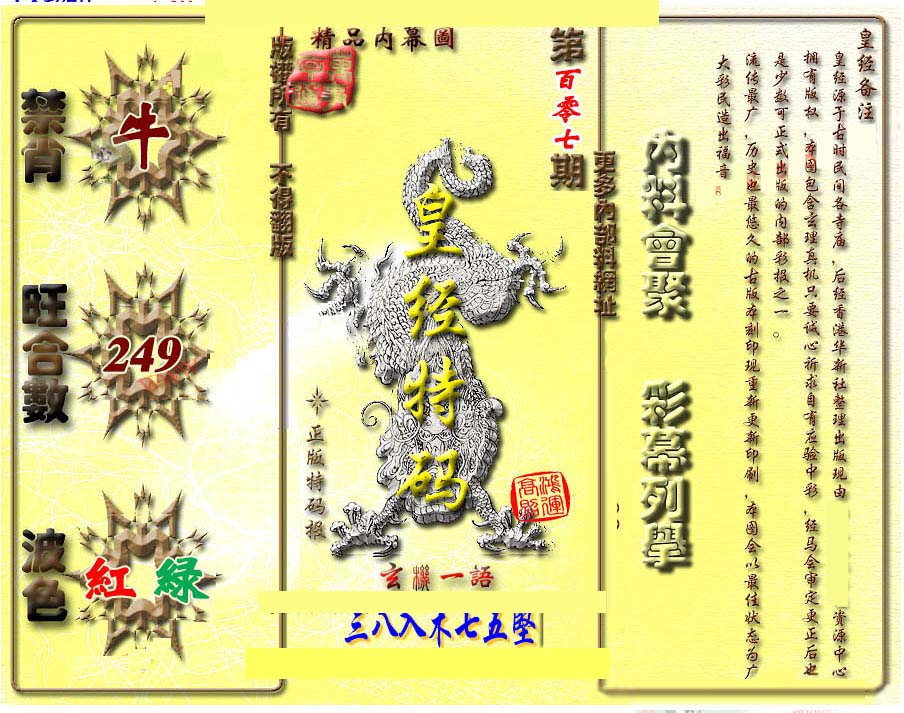 禁肖
牛
旺合數
249
波色
紅 綠
精品内幕圖
版谱所有 不得翻版
第百零七期
更多内部料網址
皇经特码
正版特码报
鸿運高照
玄機一語
三八入木七五堅
内料會聚
彩幕列舉
皇经备注
皇经源于古时民间各寺庙，后经香港华新社整理出版现由
资源中心
拥有版权，本图包含玄理真机只要诚心祈求自有应验中彩，经马会审定更正后也
是少数可正式出版的内部彩报之一。
流传最广，历史也最悠久的古版本刻印现重新更新印刷，本图会以最佳状态为广
大彩民造出福音